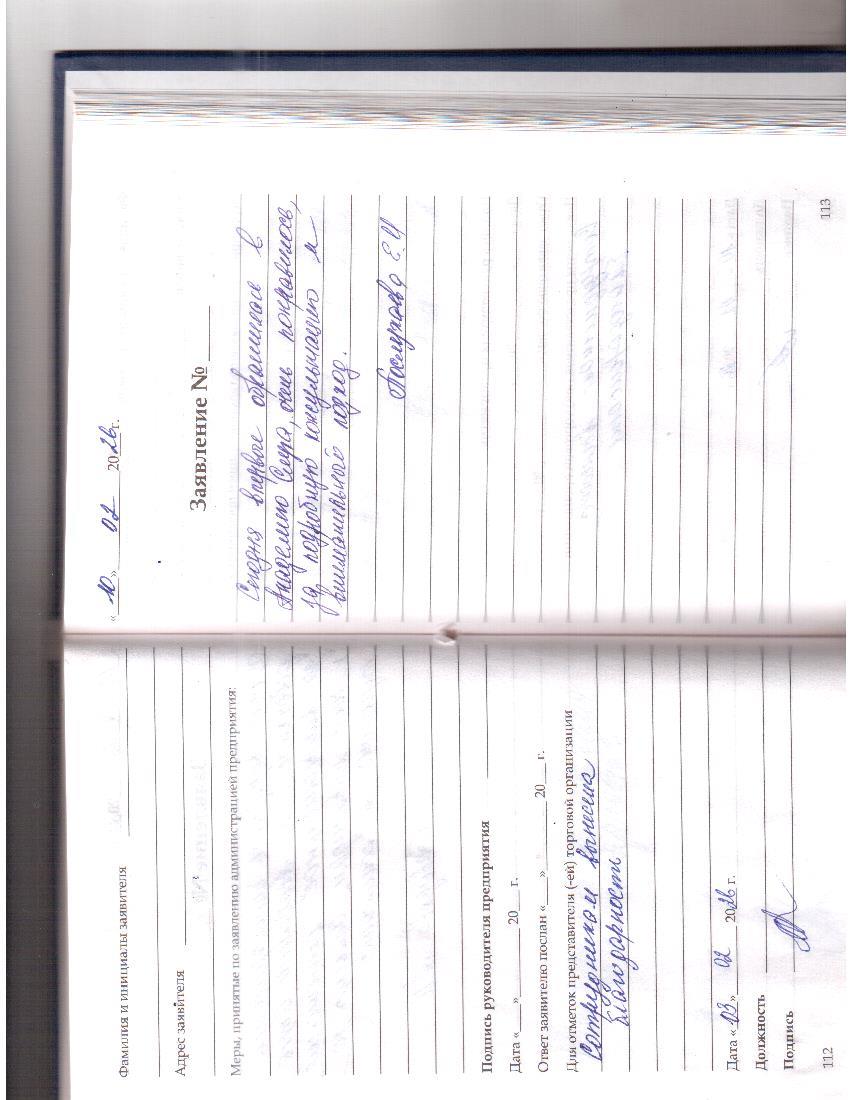 Фамилия и инициалы заявителя
Адрес заявителя
Меры, принятые по заявлению администрацией предприятия:
Подпись руководителя предприятия
Дата «___»______ 20___ г.
Ответ заявителю послан «___» ______ 20___ г.
Для отметок представителя (-ей) торговой организации
Сотрудникам вынесена
благодарность
Дата «03» 02 2026 г.
Должность
Подпись
112
«10» 02 2026 г.
Заявление № ____
Сегодня впервые обратилась в
Академию Слуха, очень понравилось,
за подробную консультацию и
внимательный подход.
Е.И
113